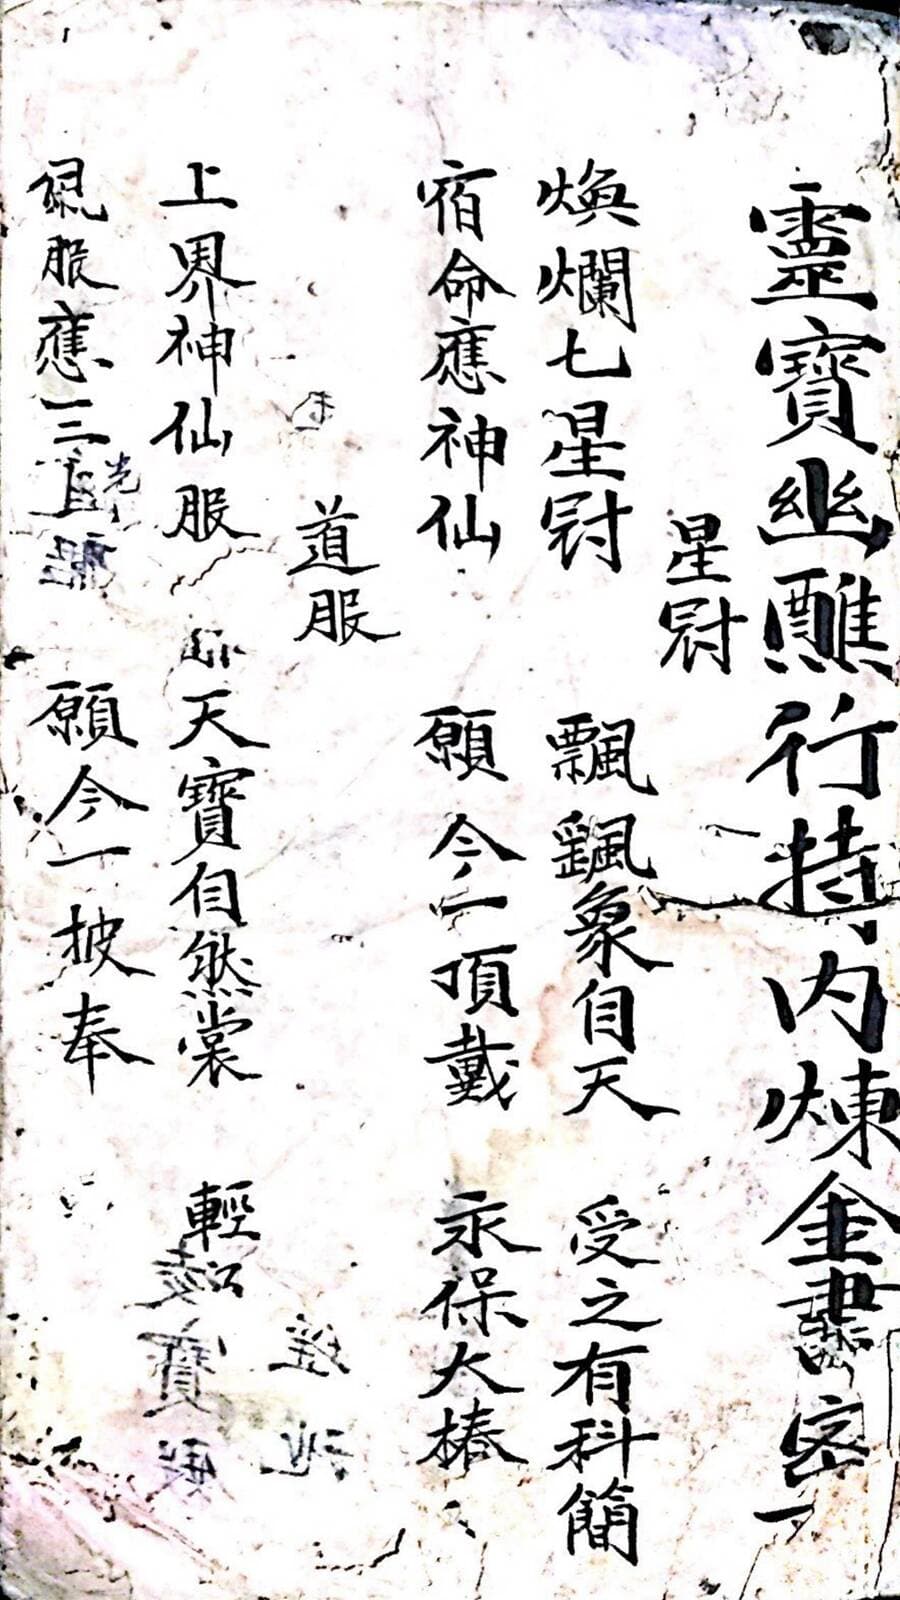 靈寶幽醮行持內煉金書密
星冠
煥爛七星冠 飄飄象自天 受之有科簡
宿命應神仙 願今一頂戴 永保大椿
道服
上界神仙服 天寶自然裳 輕
服應三 願今一披奉